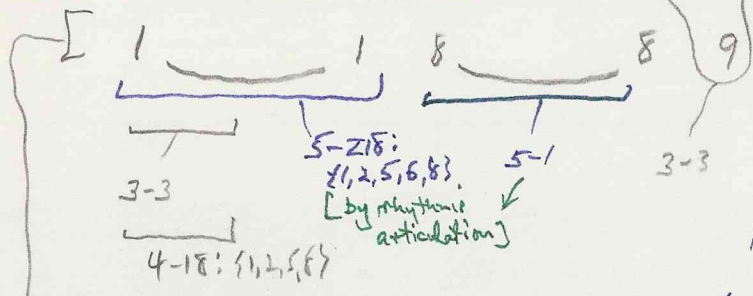 [ 1 1 8 8 9
5-Z18:
{1,2,5,6,8}
5-1
3-3
3-3
[by rhythmic
articulation]
4-18: {1,2,5,8}